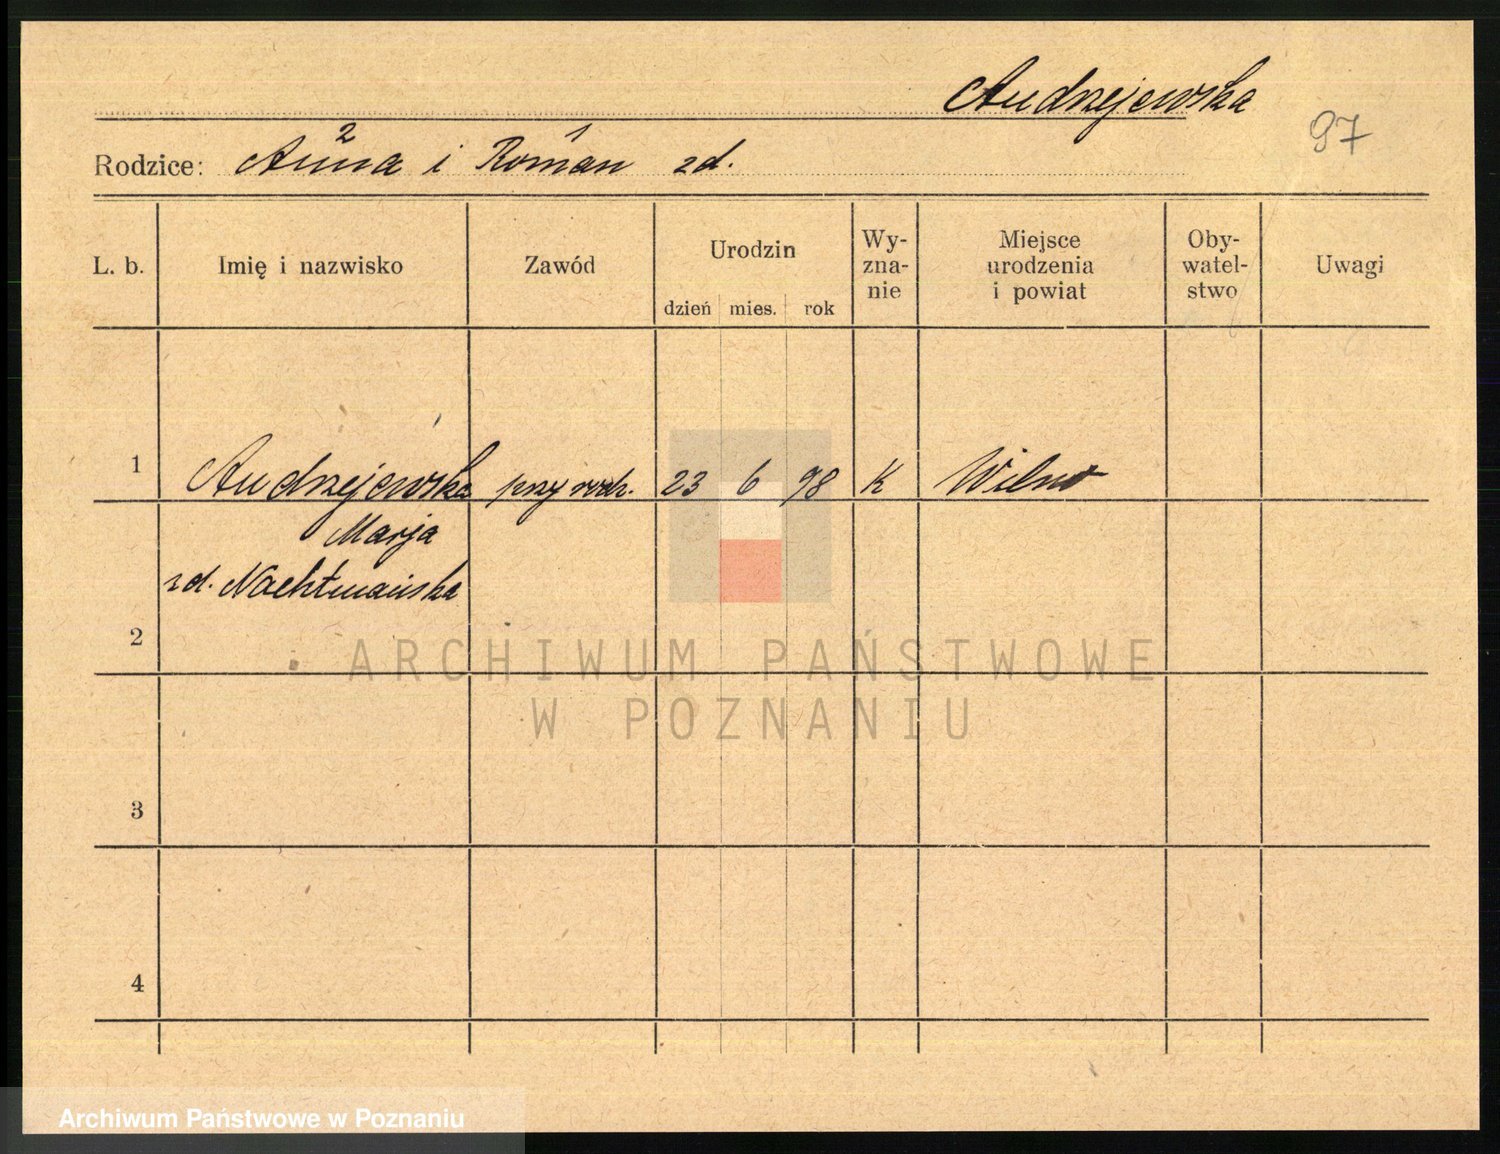 Andrzejewska
97
2 1
Rodzice: Anna i Roman zd.
L. b. Imię i nazwisko Zawód Urodzin dzień mies. rok Wy-zna-nie Miejsce urodzenia i powiat Oby-watel-stwo Uwagi
1 Andrzejewska przy rodz. 23 6 98 K Wilno
Marja
zd. Nachtmańska
2
ARCHIWUM PAŃSTWOWE
W POZNANIU
3
4
Archiwum Państwowe w Poznaniu